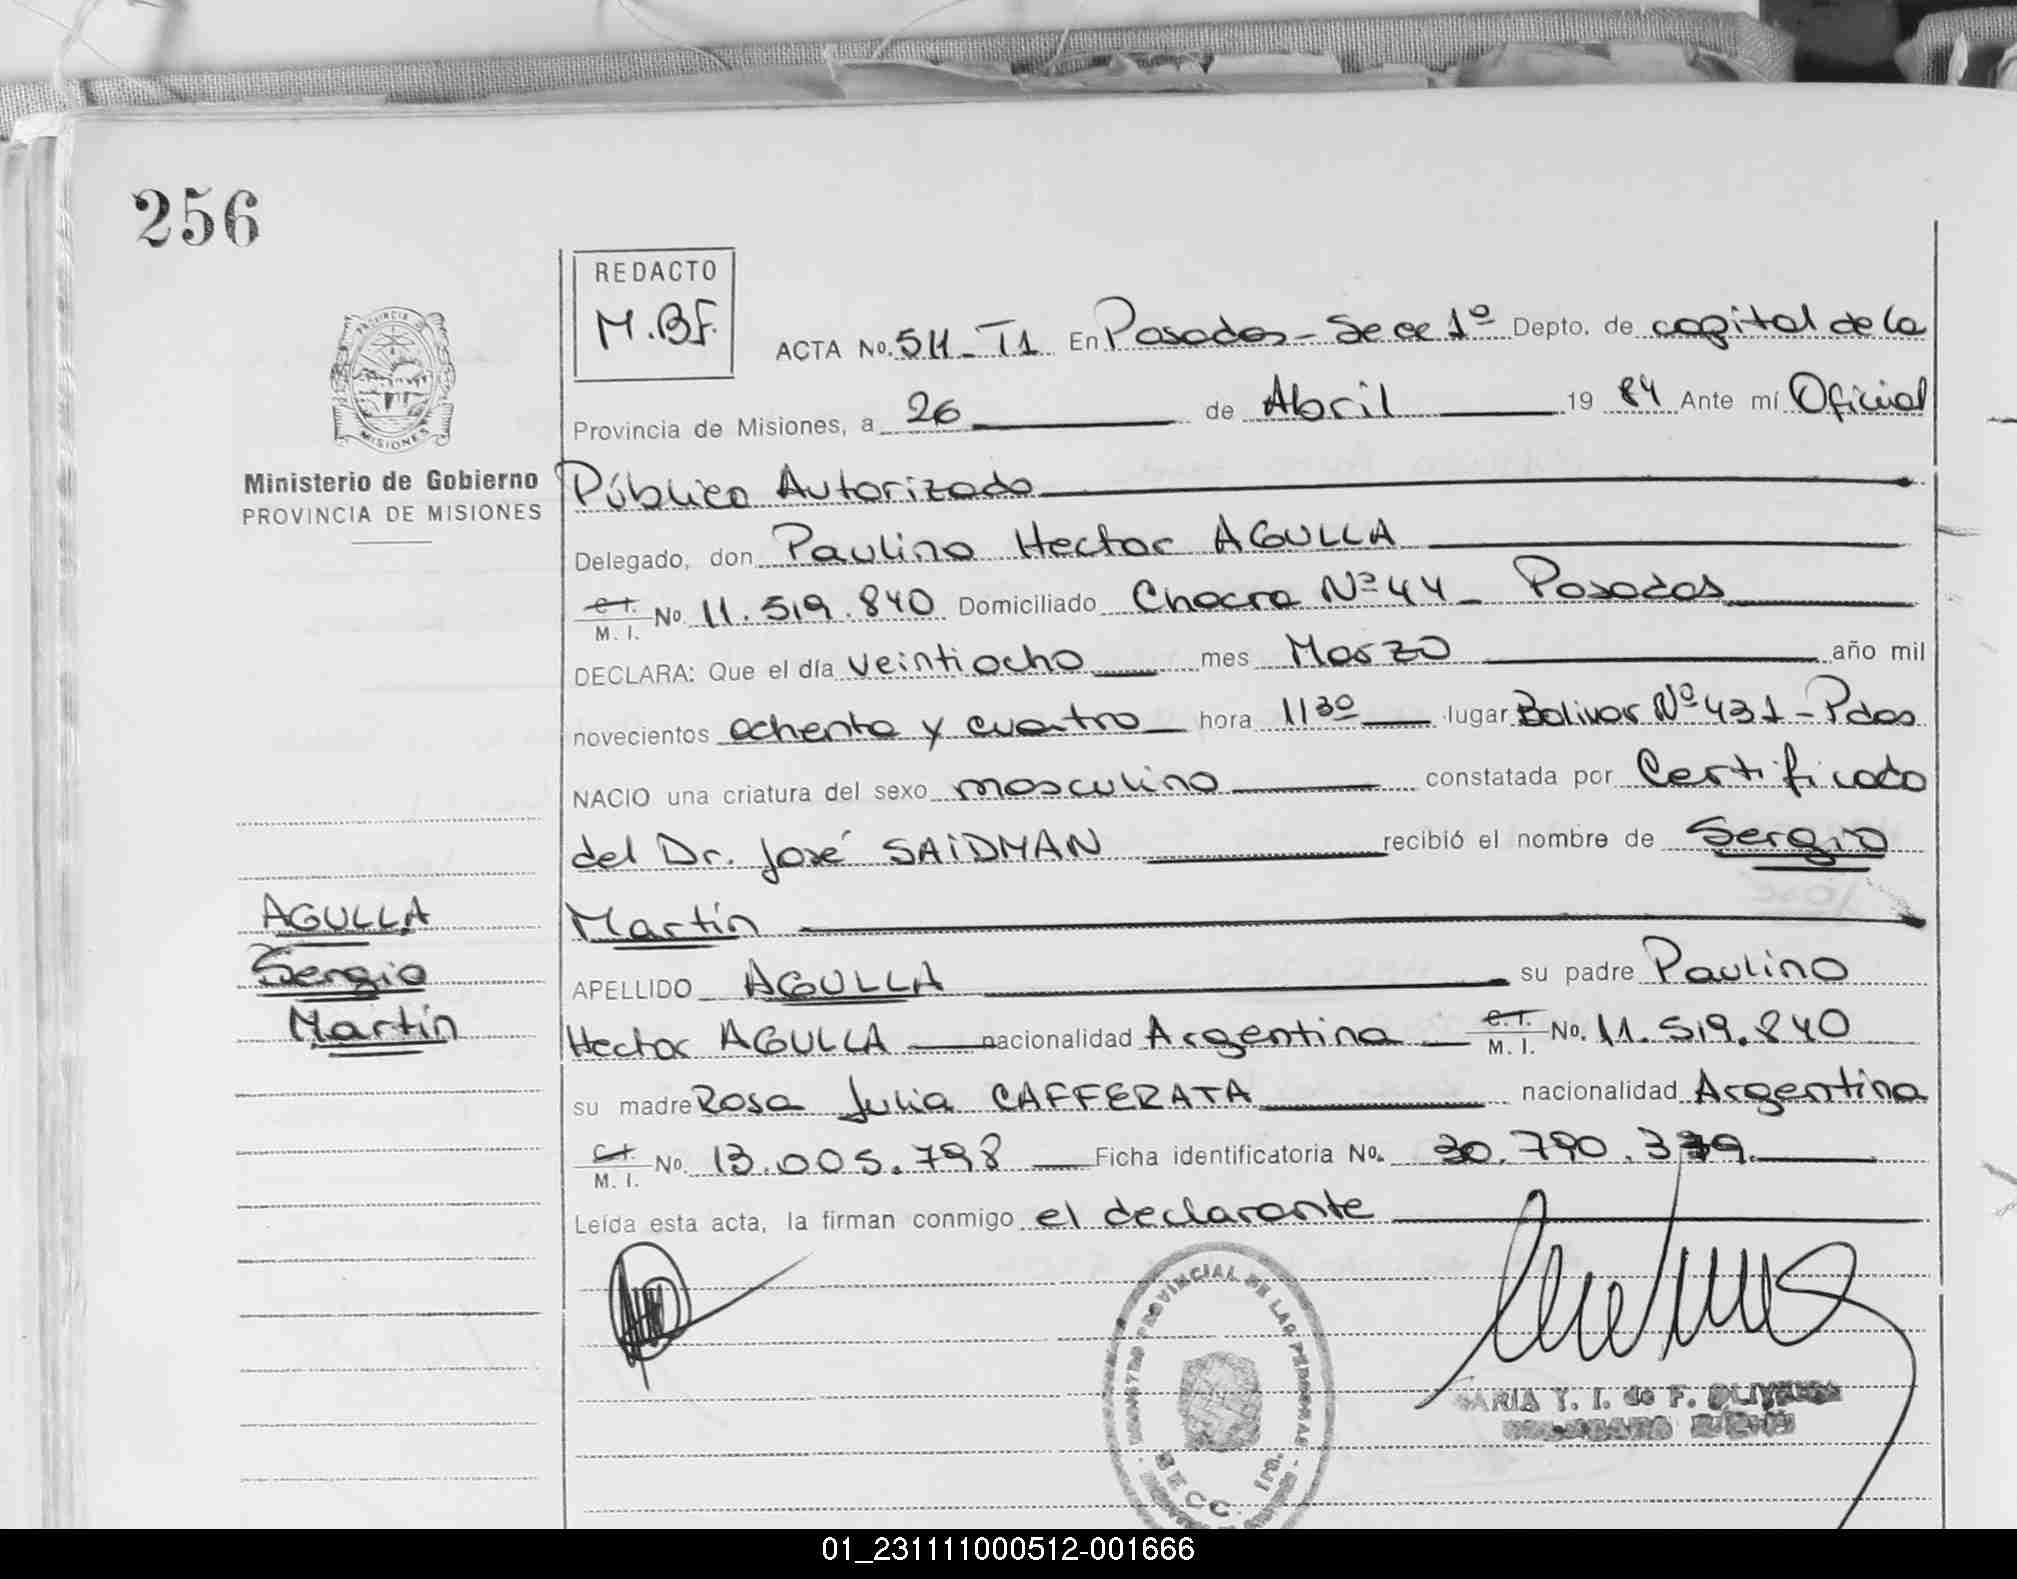 256
REDACTO
M.BF.
PROVINCIA DE
MISIONES
Ministerio de Gobierno
PROVINCIA DE MISIONES
ACTA No. 511_T1 En Posadas - Secc 1º Depto. de capital de la
Provincia de Misiones, a 26 de Abril 19 84 Ante mí Oficial
Público Autorizado
Delegado, don Paulino Hector AGULLA
C. I. M. I. No. 11.519.840 Domiciliado Chacra Nº 44 _ Posadas
DECLARA: Que el día veintiocho mes Marzo año mil
novecientos ochenta y cuatro hora 11 30 lugar Bolivar Nº 431 - Pdas
NACIO una criatura del sexo masculino constatada por Certificado
del Dr. José SAIDMAN recibió el nombre de Sergio
Martín
APELLIDO AGULLA su padre Paulino
Hector AGULLA nacionalidad Argentina C. I. M. I. No. 11.519.840
su madre Rosa Julia CAFFERATA nacionalidad Argentina
C. I. M. I. No. 13.005.798 Ficha identificatoria No. 30.790.379.
Leída esta acta, la firman conmigo el declarante
AGULLA
Sergio
Martín
REGISTRO PROVINCIAL DE LAS PERSONAS
SECC. 1ra.
MARIA Y. I. de F. OLIVEIRA
01_231111000512-001666